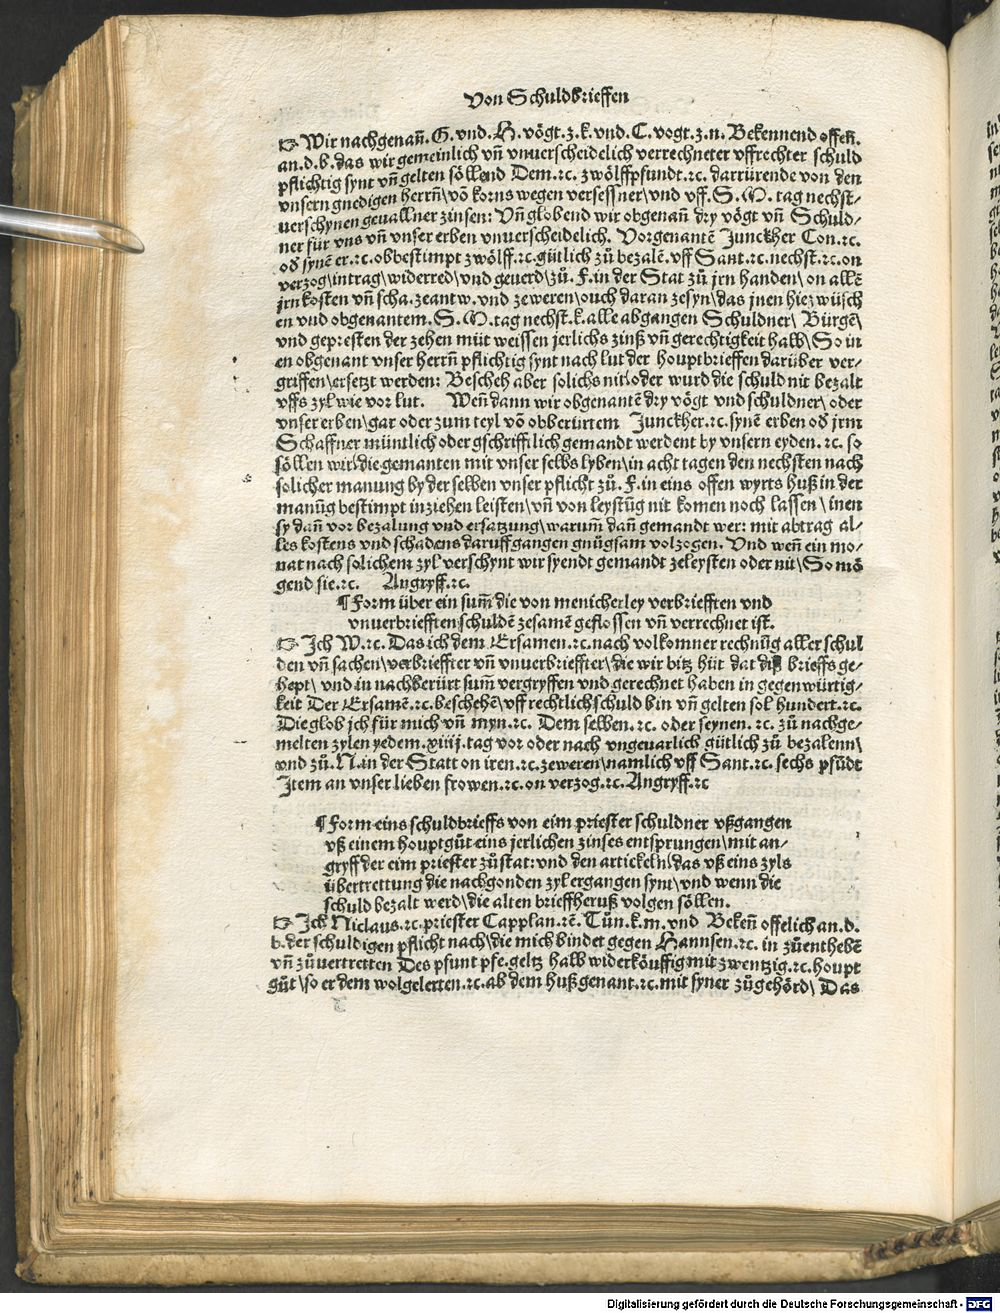 Von Schuldbrieffen
☞ Wir nachgenañ. G. vnd. H. vögt. z. k. vnd. C. vogt. z. n. Bekennend offeñ.
an. d. b. das wir gemeinlich vñ vnuerscheidelich verrechneter vffrechter schuld
pflichtig synt vñ gelten söllend Dem. ꝛc. zwölffpfundt. ꝛc. darrürende von den
vnsern gnedigen herrñ\ vō korns wegen versessner\ vnd vff. S. M. tag nechst⸗
verschynen geuallner zinsen: Vñ globend wir obgenañ dry vögt vñ Schuld⸗
ner für vns vñ vnser erben vnuerscheidelich. Vorgenantē Junckher Con. ꝛc.
od̄ synē er. ꝛc. obbestimpt zwölff. ꝛc. gütlich zů bezalē. vff Sant. ꝛc. nechst. ꝛc. on
verzog\ intrag\ widerred\ vnd geuerd\ zů. F. in der Stat zů jrn handen\ on allē
jrn kosten vñ scha. zeantw. vnd zeweren\ ouch daran zesyn\ das jnen hiezwüsch
en vnd obgenantem. S. M. tag nechst. k. alle abgangen Schuldner\ Bürgē\
vnd gepresten der zehen müt weissen jerlichs zinß vñ gerechtigkeit halb\ So in
en obgenant vnser herrñ pflichtig synt nach lut der houptbrieffen darüber ver⸗
griffen\ ersetzt werden: Bescheh aber solichs nit\ oder wurd die schuld nit bezalt
vffs zyl wie vor lut. Weñ dann wir obgenantē dry vögt vnd schuldner\ oder
vnser erben\ gar oder zum teyl vō obberürtem Junckher. ꝛc. synē erben od̄ jrm
Schaffner müntlich oder gschrifftlich gemandt werdent by vnsern eyden. ꝛc. so
söllen wir\ die gemanten mit vnser selbs lyben\ in acht tagen den nechsten nach
solicher manung by der selben vnser pflicht zů. F. in eins offen wyrts huß in der
manūg bestimpt inziehen leisten\ vñ von leystūg nit komen noch lassen\ inen
sy dañ vor bezalung vnd ersatzung\ warum̄ dañ gemandt wer: mit abtrag al⸗
les kostens vnd schadens daruffgangen gnůgsam volzogen. Vnd weñ ein mo⸗
nat nach solichem zyl verschynt wir syendt gemandt zeleysten oder nit\ So mö
gend sie. ꝛc. Angryff. ꝛc.
¶ Form über ein sum̄ die von menicherley verbriefften vnd
vnuerbriefften schuldē zesamē geflossen vñ verrechnet ist.
☞ Jch W. ꝛc. Das ich dem Ersamen. ꝛc. nach volkomner rechnūg aller schul
den vñ sachen\ verbrieffter vñ vnuerbrieffter\ die wir bitz hüt dat diß brieffs ge⸗
hept\ vnd in nachberürt sum̄ vergryffen vnd gerechnet haben in gegenwürtig⸗
keit Der Ersamē. ꝛc. beschehē\ vff rechtlich schuld bin vñ gelten sol hundert. ꝛc.
Die glob jch für mich vñ myn. ꝛc. Dem selben. ꝛc. oder seynen. ꝛc. zů nachge⸗
melten zylen yedem. xiiij. tag vor oder nach vngeuarlich gütlich zů bezalenn\
vnd zů. N. in der Statt on iren. ꝛc. zeweren\ namlich vff Sant. ꝛc. sechs pfūdt
Jtem an vnser lieben frowen. ꝛc. on verzog. ꝛc. Angryff. ꝛc
¶ Form eins schuldbrieffs von eim priester schuldner vßgangen
vß einem houptgůt eins jerlichen zinses entsprungen\ mit an⸗
gryff der eim priester zůstat: vnd den artickeln\ das vß eins zyls
übertrettung die nachgonden zyl ergangen synt\ vnd wenn die
schuld bezalt werd\ die alten brieff heruß volgen söllen.
☞ Jch Niclaus. ꝛc. priester Capplan. ꝛē. Tůn. k. m. vnd Bekeñ offelich an. d.
b. der schuldigen pflicht nach\ die mich bindet gegen Hannsen. ꝛc. in zůenthebē
vñ zůvertretten Des pfunt pfe. geltz halb widerköuffig mit zwentzig. ꝛc. houpt
gůt\ so er dem wolgelerten. ꝛc. ab dem huß genant. ꝛc. mit syner zůgehörd\ Das
Digitalisierung gefördert durch die Deutsche Forschungsgemeinschaft - DFG